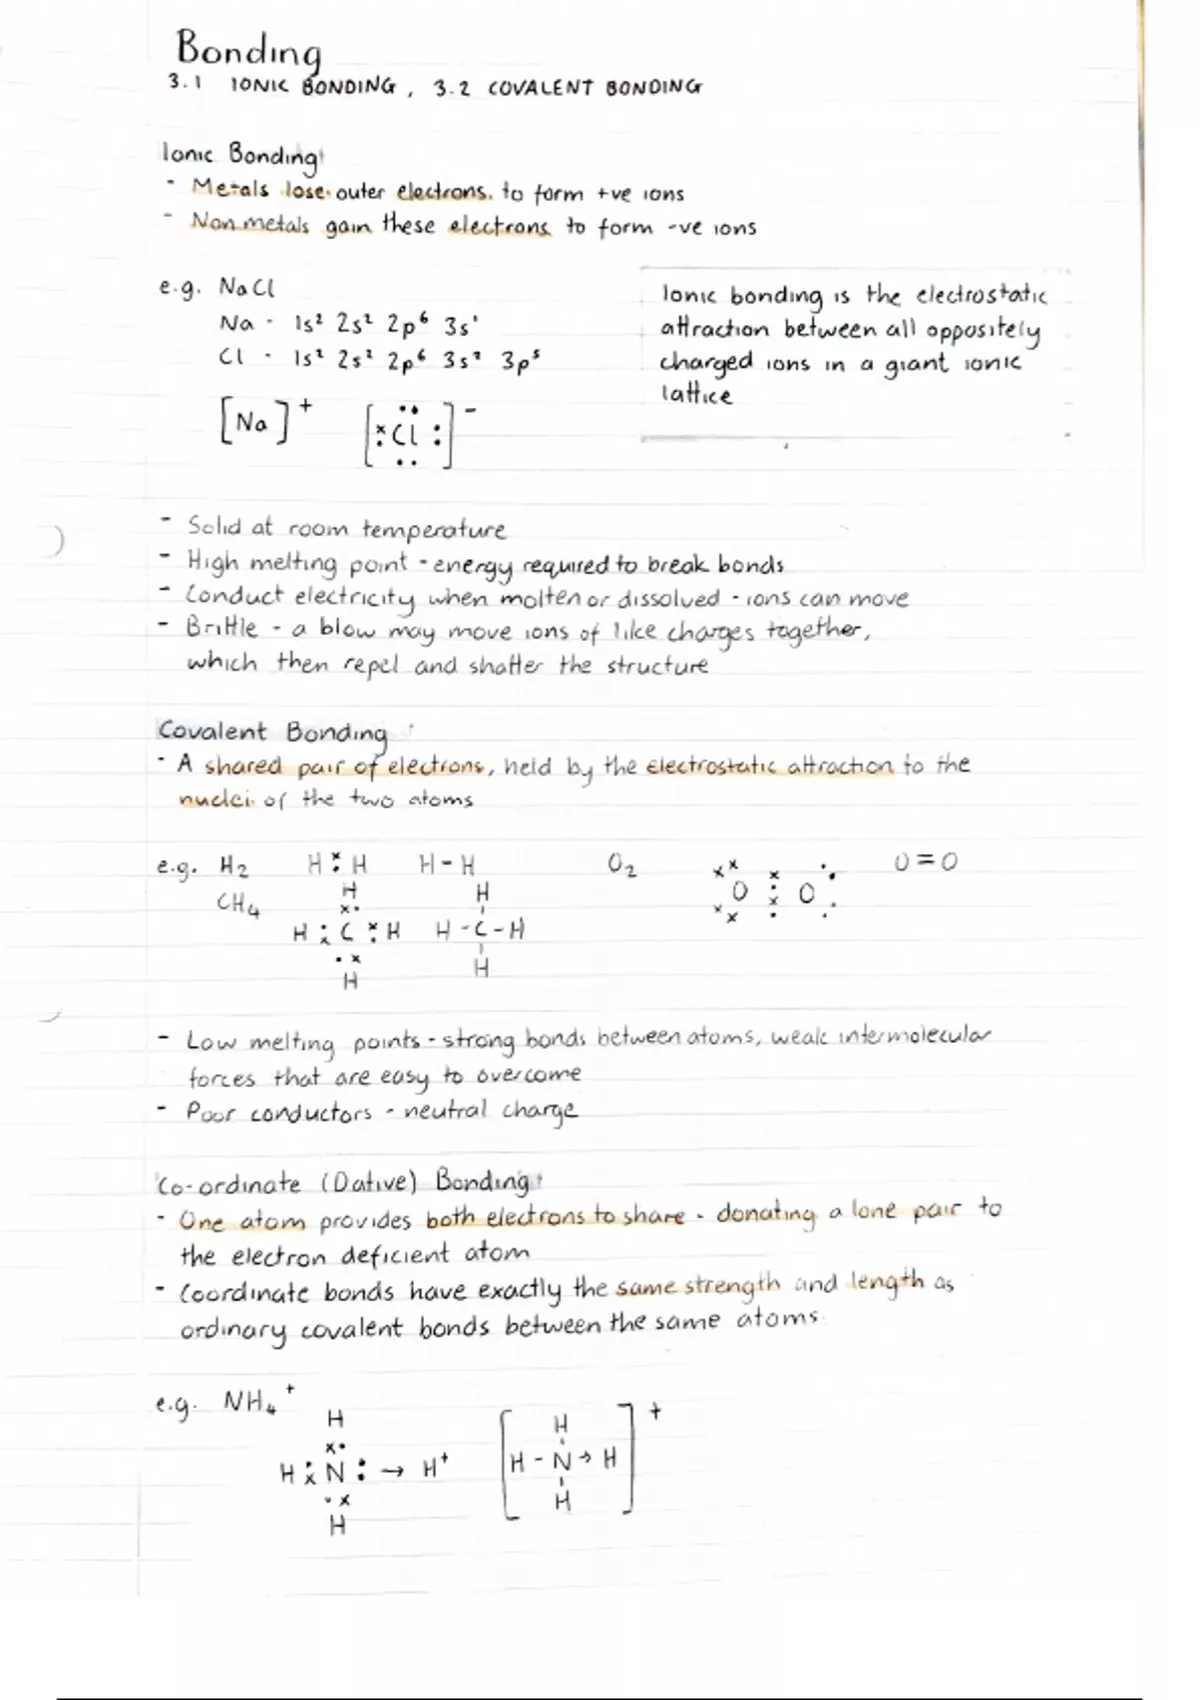 Bonding
3.1 IONIC BONDING, 3.2 COVALENT BONDING
Ionic Bonding
- Metals lose outer electrons to form +ve ions
- Non metals gain these electrons to form -ve ions
e.g. NaCl
Na - 1s² 2s² 2p⁶ 3s¹
Cl - 1s² 2s² 2p⁶ 3s² 3p⁵
[Na]⁺ [Cl]⁻
Ionic bonding is the electrostatic
attraction between all oppositely
charged ions in a giant ionic
lattice
- Solid at room temperature
- High melting point - energy required to break bonds
- Conduct electricity when molten or dissolved - ions can move
- Brittle - a blow may move ions of like charges together,
which then repel and shatter the structure
Covalent Bonding
- A shared pair of electrons, held by the electrostatic attraction to the
nuclei of the two atoms
e.g. H₂ H H H-H O₂ O O O=O
CH₄ H H
H C H H-C-H
H H
- Low melting points - strong bonds between atoms, weak intermolecular
forces that are easy to overcome
- Poor conductors - neutral charge
Co-ordinate (Dative) Bonding
- One atom provides both electrons to share - donating a lone pair to
the electron deficient atom
- Coordinate bonds have exactly the same strength and length as
ordinary covalent bonds between the same atoms.
e.g. NH₄⁺
H H +
H N : → H⁺ [H-N→H]
H H